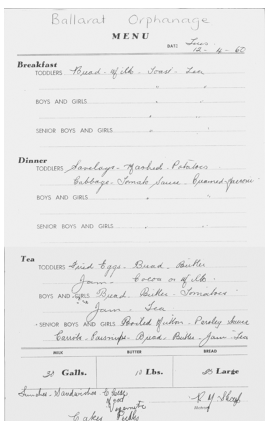 Ballarat Orphanage
MENU
DATE Tues
12-4-60
Breakfast
TODDLERS Bread - Milk - Toast - Tea
BOYS AND GIRLS " "
SENIOR BOYS AND GIRLS " "
Dinner
TODDLERS Saveloys - Mashed - Potatoes
Cabbage - Tomato Sauce -
BOYS AND GIRLS " "
SENIOR BOYS AND GIRLS " "
Tea
TODDLERS Fried Eggs - Bread - Butter
Jam - Cocoa or Milk
BOYS AND GIRLS Bread - Butter - Tomatoes
Jam - Tea
SENIOR BOYS AND GIRLS Boiled Mutton - Parsley Sauce
Carrots - Parsnips - Bread - Butter - Jam - Tea
MILK BUTTER BREAD
Galls. Lbs. Large
Lunches - Sandwiches Cheese
Meat
Vegemite
Cakes Pickles